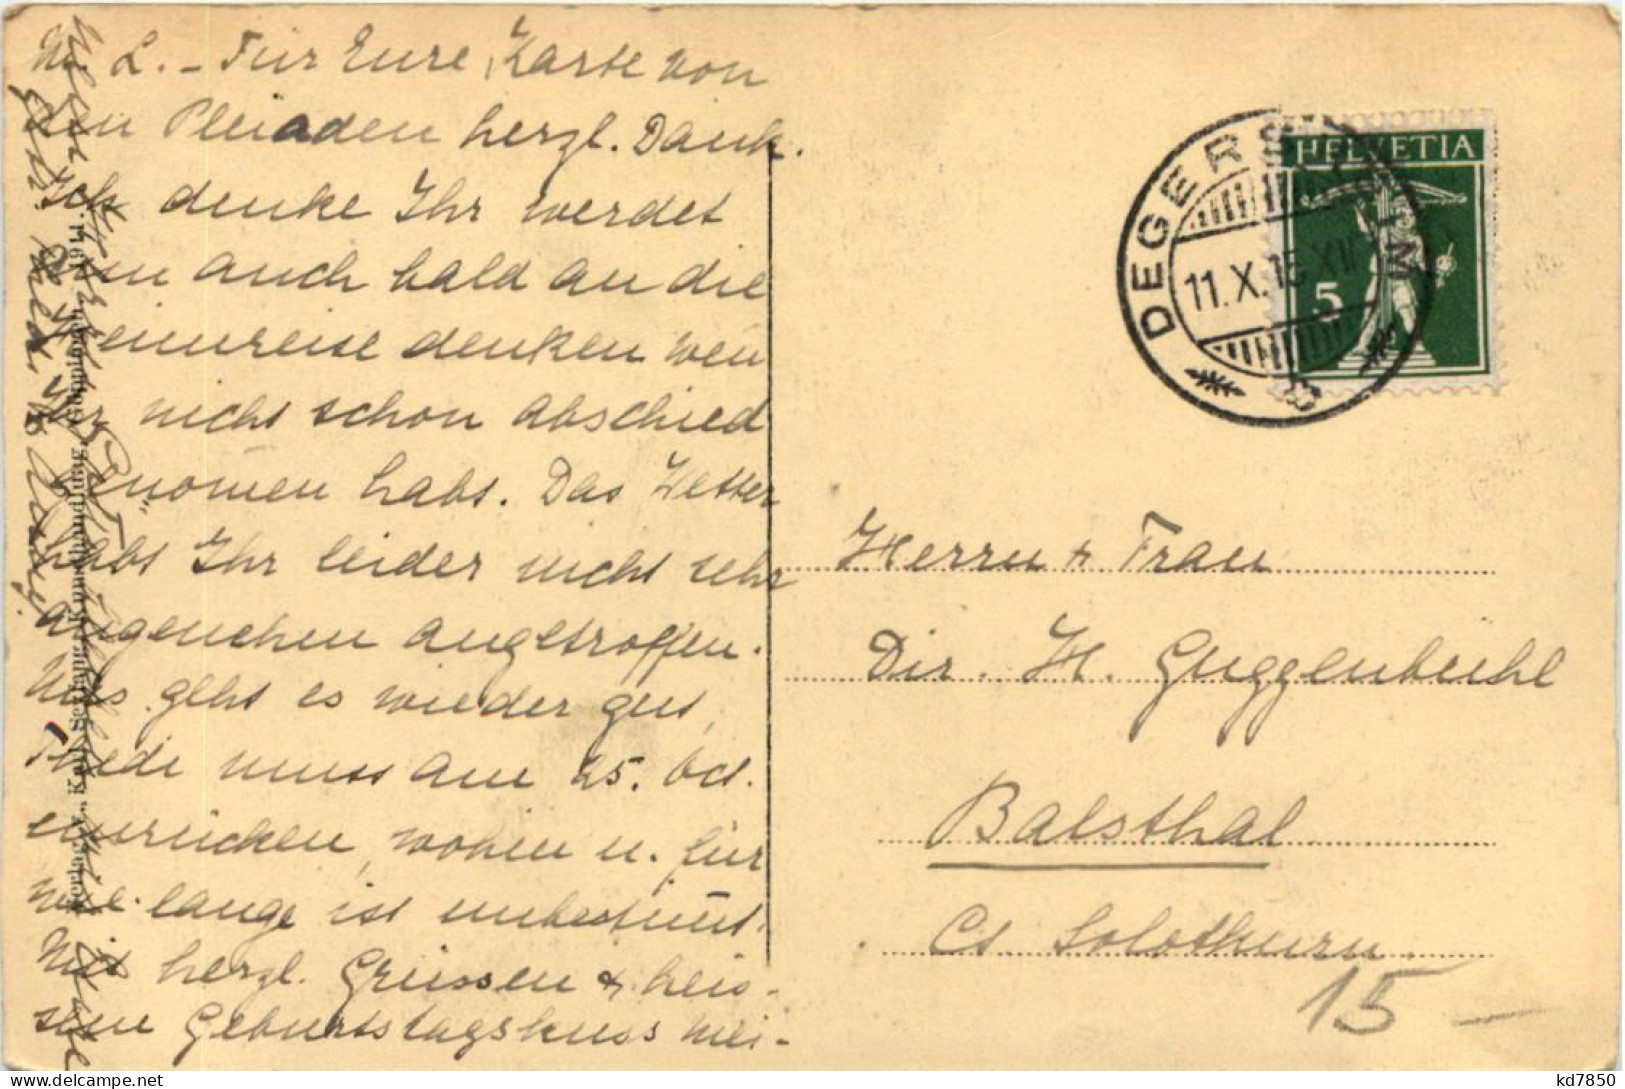 M. L. – Für Eure Karte von
den Pleiaden herzl. Dank.
Ich denke Ihr werdet
nun auch bald an die
Heimreise denken wen
Ihr nicht schon abschied
genom̄en habt. Das Wetter
habt Ihr leider nicht sehr
angenehm angetroffen.
Uns geht es wieder gut,
Thedi muss am 25. Oct.
einrücken, wohin u. für
wie lange ist unbestim̄t.
Mit herzl. Grüssen & heis-
sem Geburtstagskuss mei-
Verlag v. Karl Kunsthandlung, 1911.
HELVETIA
5
DEGERSHEIM
11.X.15.XII
Herrn & Frau
Dir. H. Guggenbühl
Balsthal
Ct Solothurn
15
kd7850